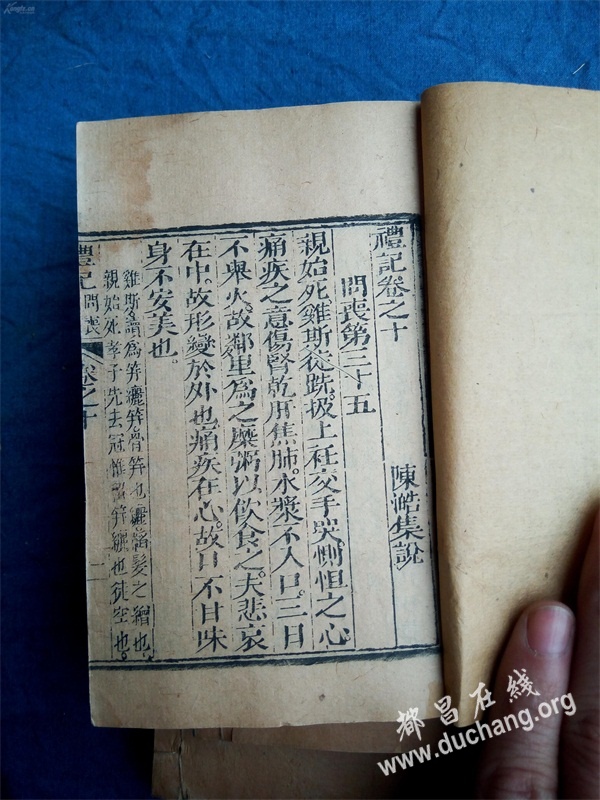 禮記卷之十
陳澔集說
問喪第三十五
親始死雞斯徒跣扱上衽交手哭惻怛之心
痛疾之意傷腎乾肝焦肺水漿不入口三日
不舉火故鄰里為之糜粥以飲食之夫悲哀
在中故形變於外也痛疾在心故口不甘味
身不安美也
雞斯讀為笄纚笄骨笄也纚韜髮之繒也
親始死孝子先去冠惟留笄纚也徒空也
禮記 問喪 卷之十 二
都昌在线
www.duchang.org